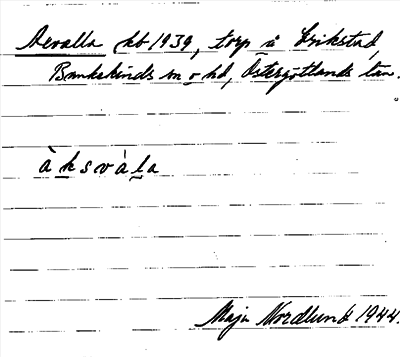 Axvalla kb 1939, torp u Erikstad,
Bankekinds sn o hd, Östergötlands län.
à k s v à l a
Maja Nordlund 1944.